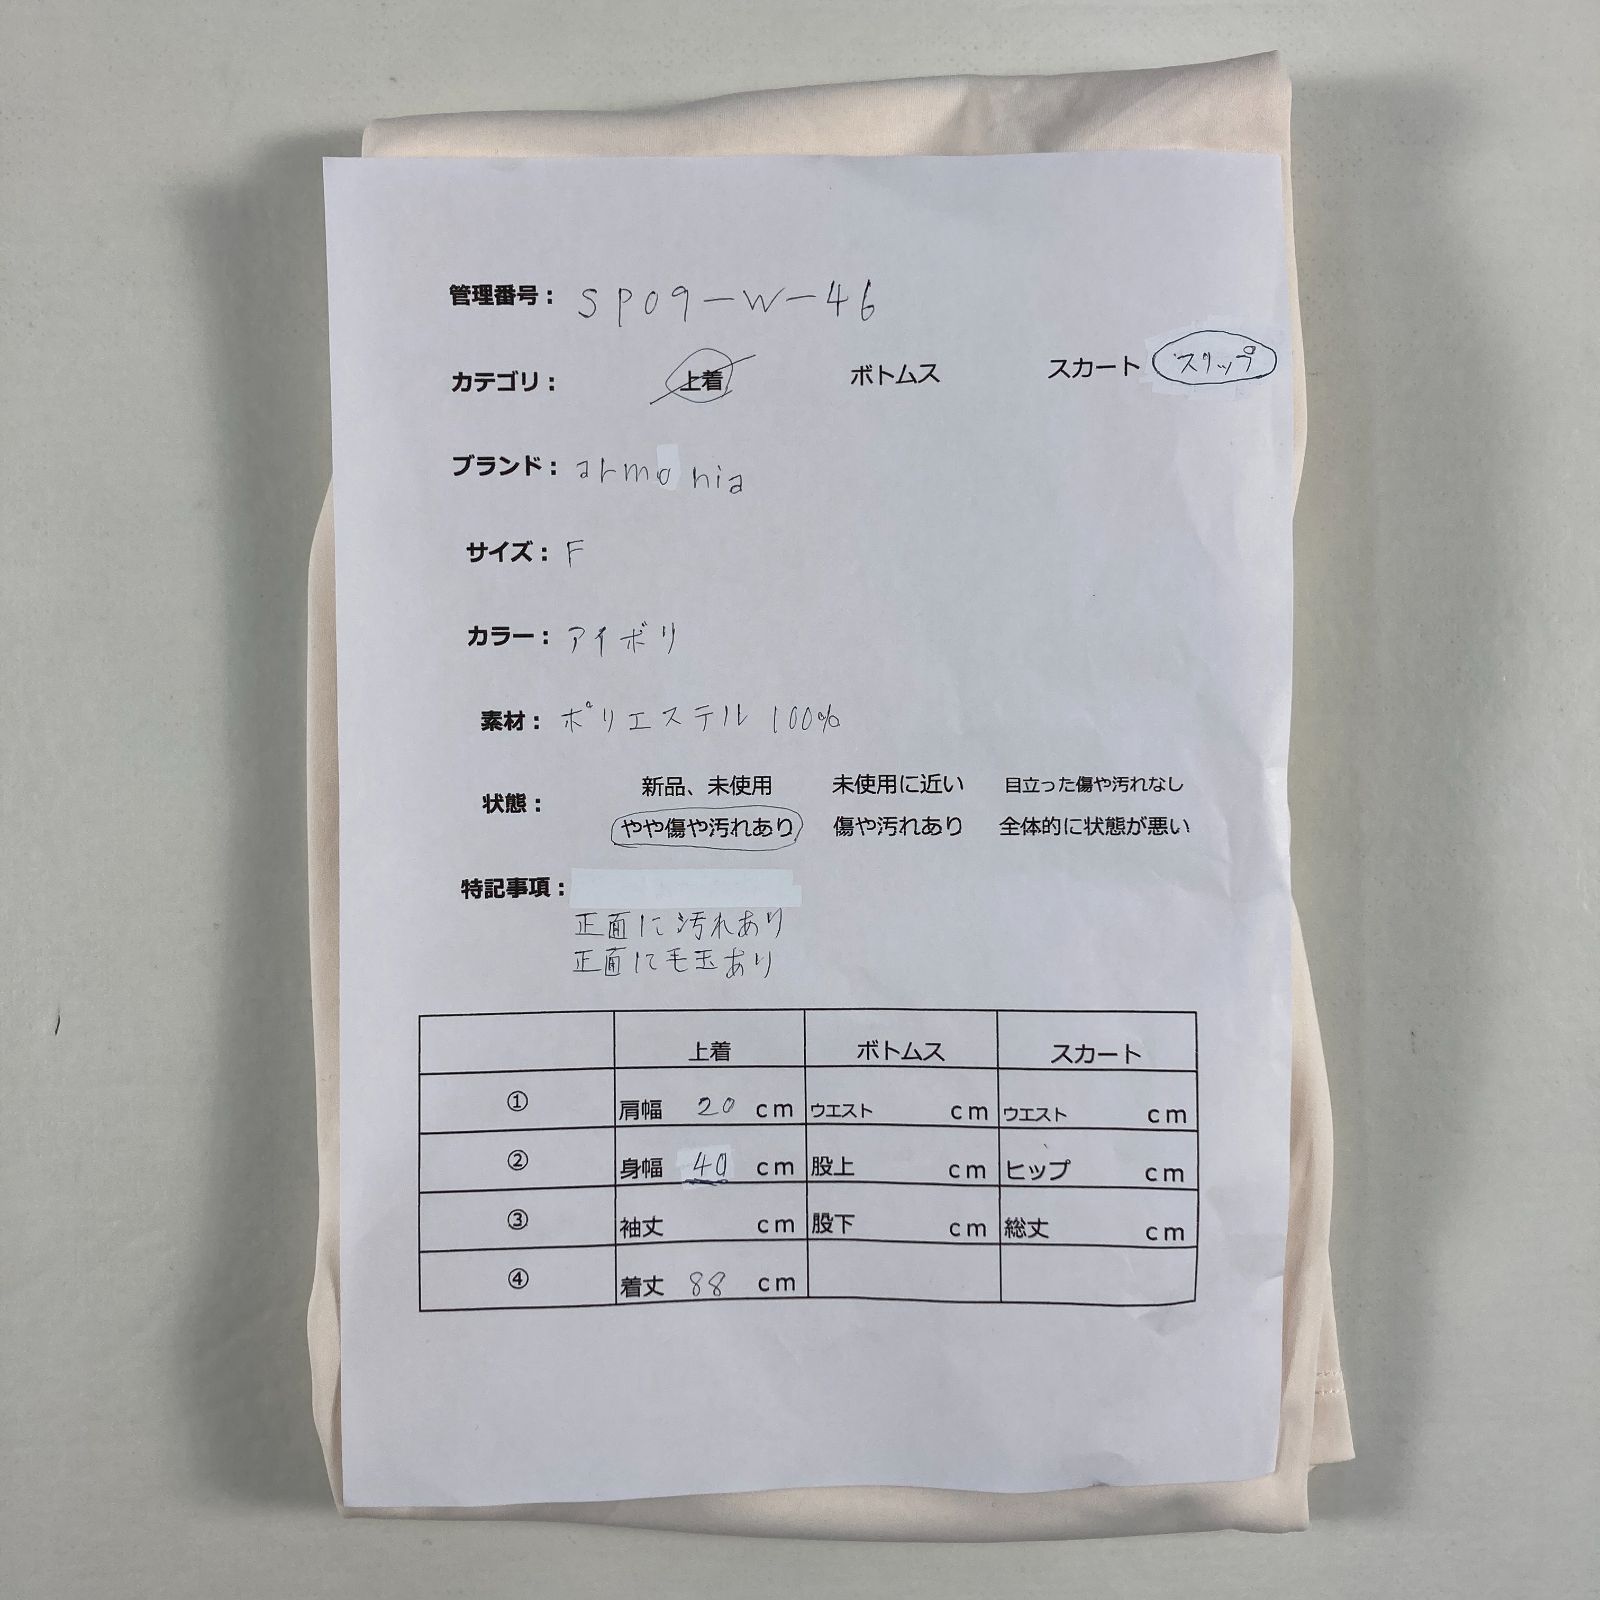 管理番号： SP09-W-46
カテゴリ： 上着 ボトムス スカート スリップ
ブランド： armonia
サイズ： F
カラー： アイボリ
素材： ポリエステル 100%
新品、未使用 未使用に近い 目立った傷や汚れなし
状態：
やや傷や汚れあり 傷や汚れあり 全体的に状態が悪い
特記事項：
正面に汚れあり
正面に毛玉あり
上着 ボトムス スカート
① 肩幅 20 cm ウエスト cm ウエスト cm
② 身幅 40 cm 股上 cm ヒップ cm
③ 袖丈 cm 股下 cm 総丈 cm
④ 着丈 88 cm